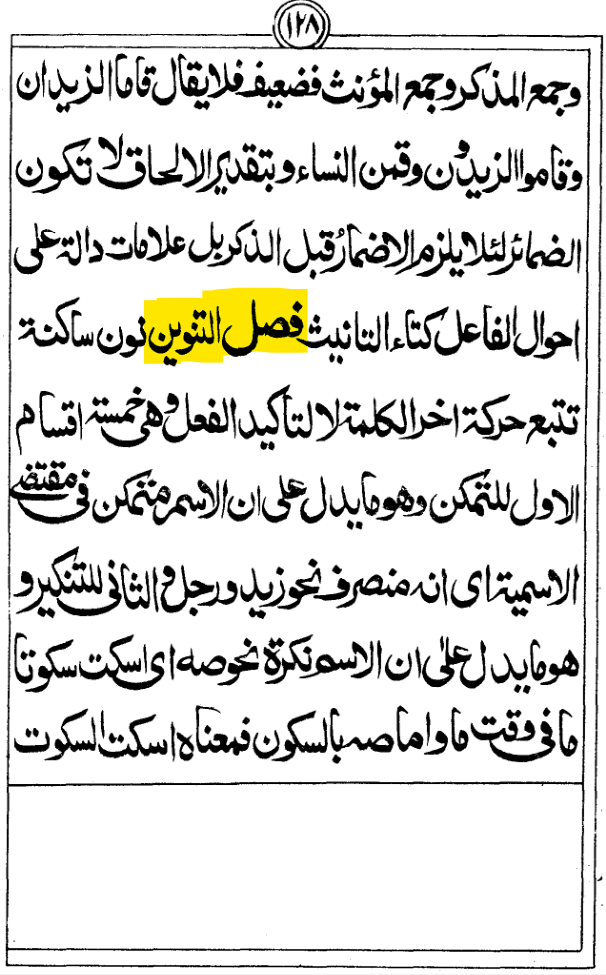 ١٢٨
وجمع المذكر وجمع المؤنث فضعيف فلا يقال قاما الزيدان
وقاموا الزيدون وقمن النساء وبتقدير الالحاق لا تكون
الضمائر لئلا يلزم الاضمارُ قبل الذكر بل علامات دالة على
احوال الفاعل كتاء التانيث فصل التنوين نون ساكنة
تتبع حركة اخر الكلمة لا لتأكيد الفعل وهى خمسة اقسام
الاول للتمكن وهو ما يدل على ان الاسم متمكن فى مقتضى
الاسمية اى انه منصرف نحو زيد ورجل والثانى للتنكير و
هو ما يدل على ان الاسم نكرة نحو صه اى اسكت سكوتا
ما فى وقت ما واما صه بالسكون فمعناه اسكت السكوت